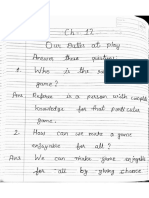 Ch. 12
Our Paths at play
Answer these question
1. Who is the
game?
Ans Referee is a person with
knowledge for that particular
game.
2. How can we make a game
enjoyable for all?
Ans We can make game
for all by giving chance